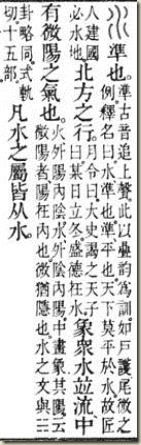 準也。準古音追上聲。此以曡韵爲訓。如戶護尾微之例。釋名曰。水準也。準平也。天下莫平於水。故匠
人建國必水地。北方之行。月令曰。大史謁之天子曰。某日立冬。盛德在水。象衆水竝流中
有微陽之氣也。火外陽內陰。水外陰內陽。中畫象其陽。云微陽者。陽在內也。微猶隱也。水之文與☵
卦略同。式軌切。十五部。凡水之屬皆从水